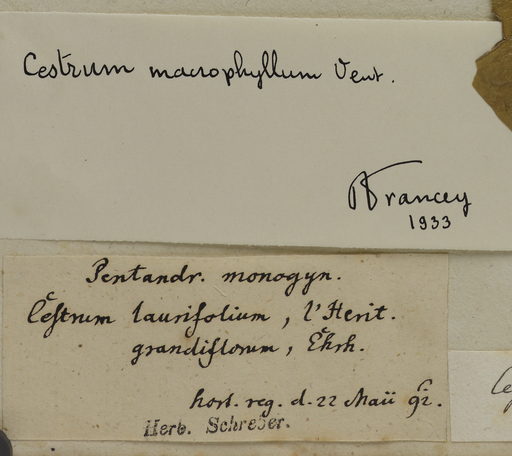 Cestrum macrophyllum Vent.
Francey
1933
Pentandr. monogyn.
Cestrum laurifolium, l'Herit.
grandiflorum, Ehrh.
hort. reg. d. 22 Maii 92.
Herb. Schreber.